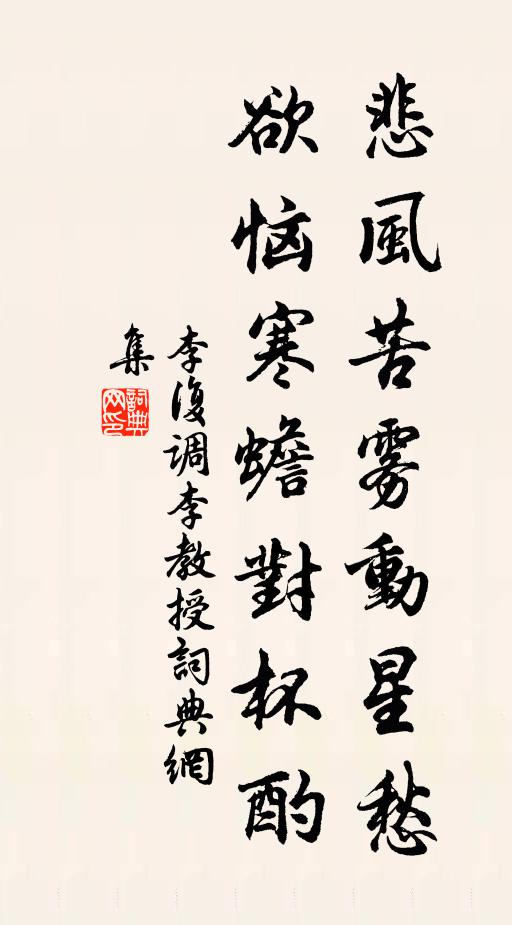 悲風苦雾動星愁
欲恼寒蟾對杯酌
李復调李教授詞典網
集
詞典
网印